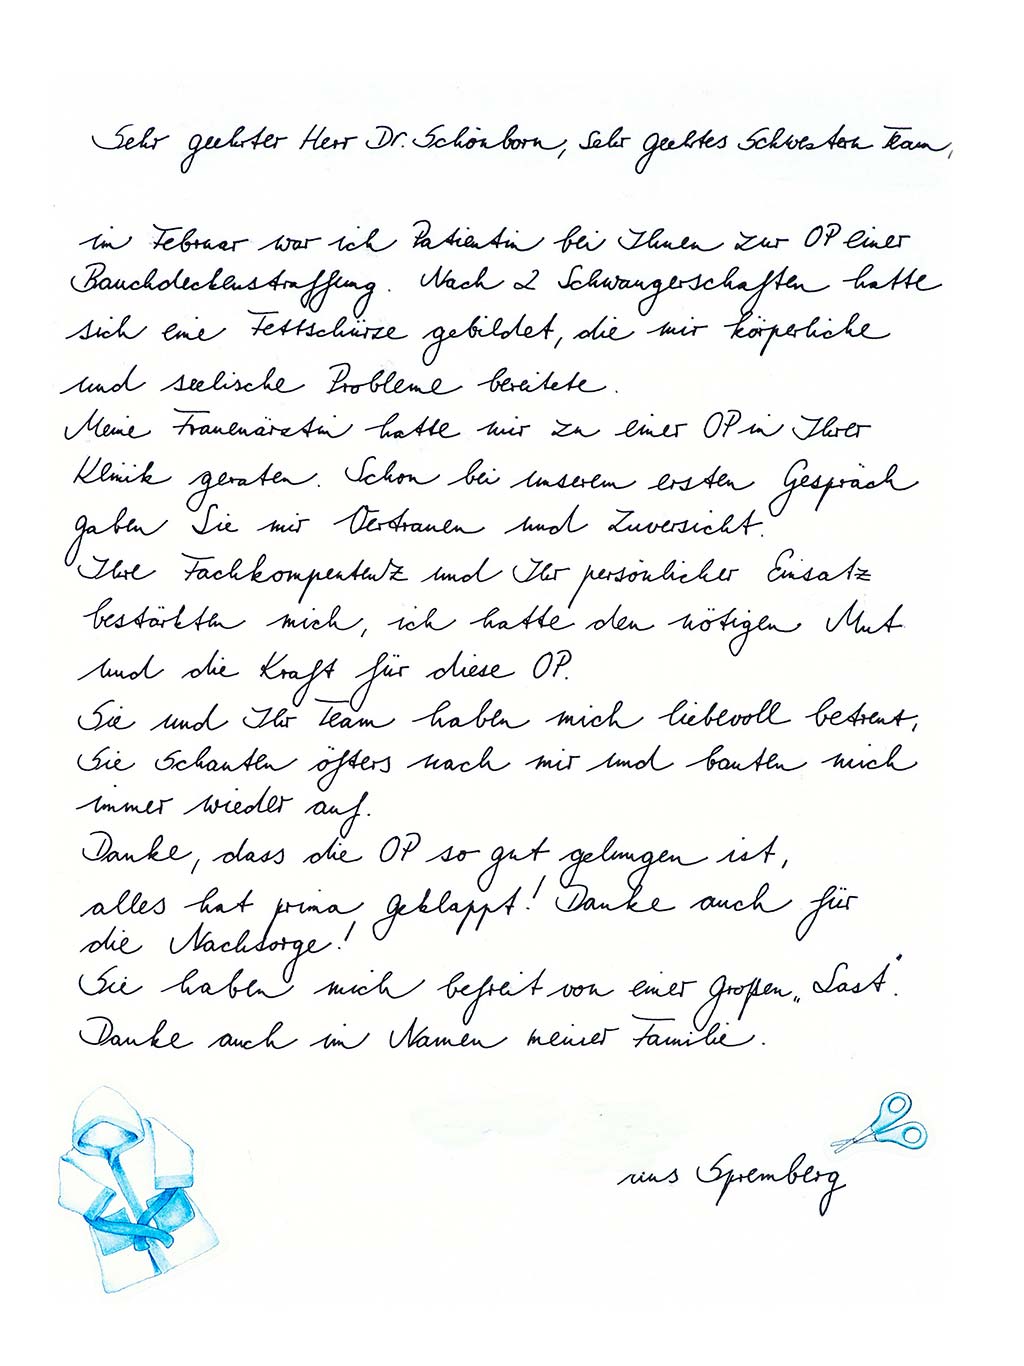 Sehr geehrter Herr Dr. Schönborn, Sehr geehrtes Schwestern Team,
im Februar war ich Patientin bei Ihnen zur OP einer
Bauchdeckenstraffung. Nach 2 Schwangerschaften hatte
sich eine Fettschürze gebildet, die mir körperliche
und seelische Probleme bereitete.
Meine Frauenärztin hatte mir zu einer OP in Ihrer
Klinik geraten. Schon bei unserem ersten Gespräch
gaben Sie mir Vertrauen und Zuversicht.
Ihre Fachkompentenz und Ihr persönlicher Einsatz
bestärkten mich, ich hatte den nötigen Mut
und die Kraft für diese OP.
Sie und Ihr Team haben mich liebevoll betreut,
Sie Schauten öfters nach mir und bauten mich
immer wieder auf.
Danke, dass die OP so gut gelungen ist,
alles hat prima geklappt! Danke auch für
die Nachsorge!
Sie haben mich befreit von einer großen „Last".
Danke auch im Namen meiner Familie.
aus Spremberg